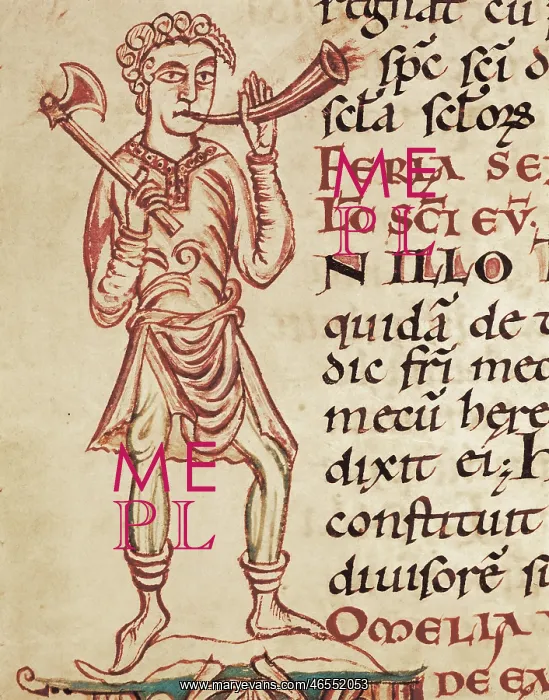 regnat cu
sp̃c sc̃i
scl̃a
FERIA SE
SC̃I EV.
N ILLO T
quidã de t
dic fr̃i mec
mecũ here
dixit ei; H
constituit
diuisorẽ
OMELIA
DE EA
ME
PL
ME
PL
www.maryevans.com/46552053